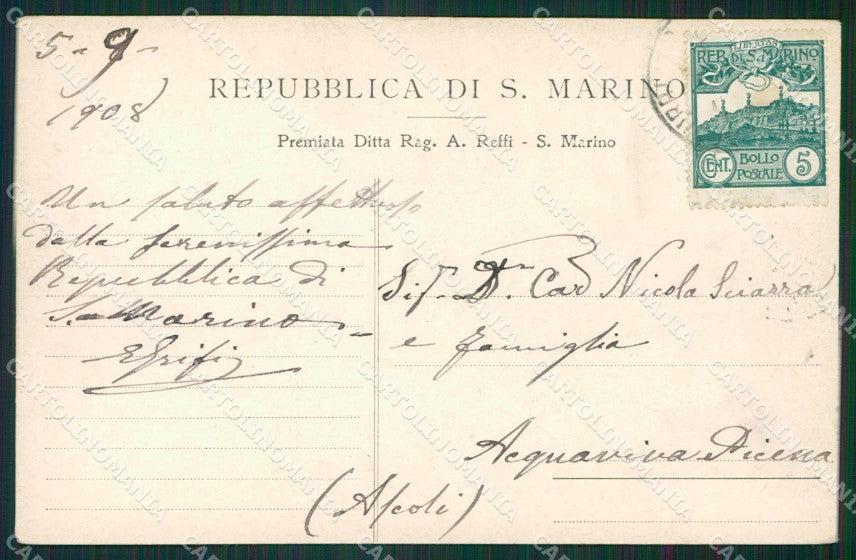 5-9-
1908
REPUBBLICA DI S. MARINO
Premiata Ditta Rag. A. Reffi - S. Marino
LIBERTAS
REP. DI S. MARINO
CENT. BOLLO POSTALE 5
Un saluto affettuoso
dalla serenissima
Repubblica di
S. Marino
Sig. Dr. Cav Nicola Sciarra
e famiglia
Acquaviva Picena
(Ascoli)
CARTOLINOMANIA